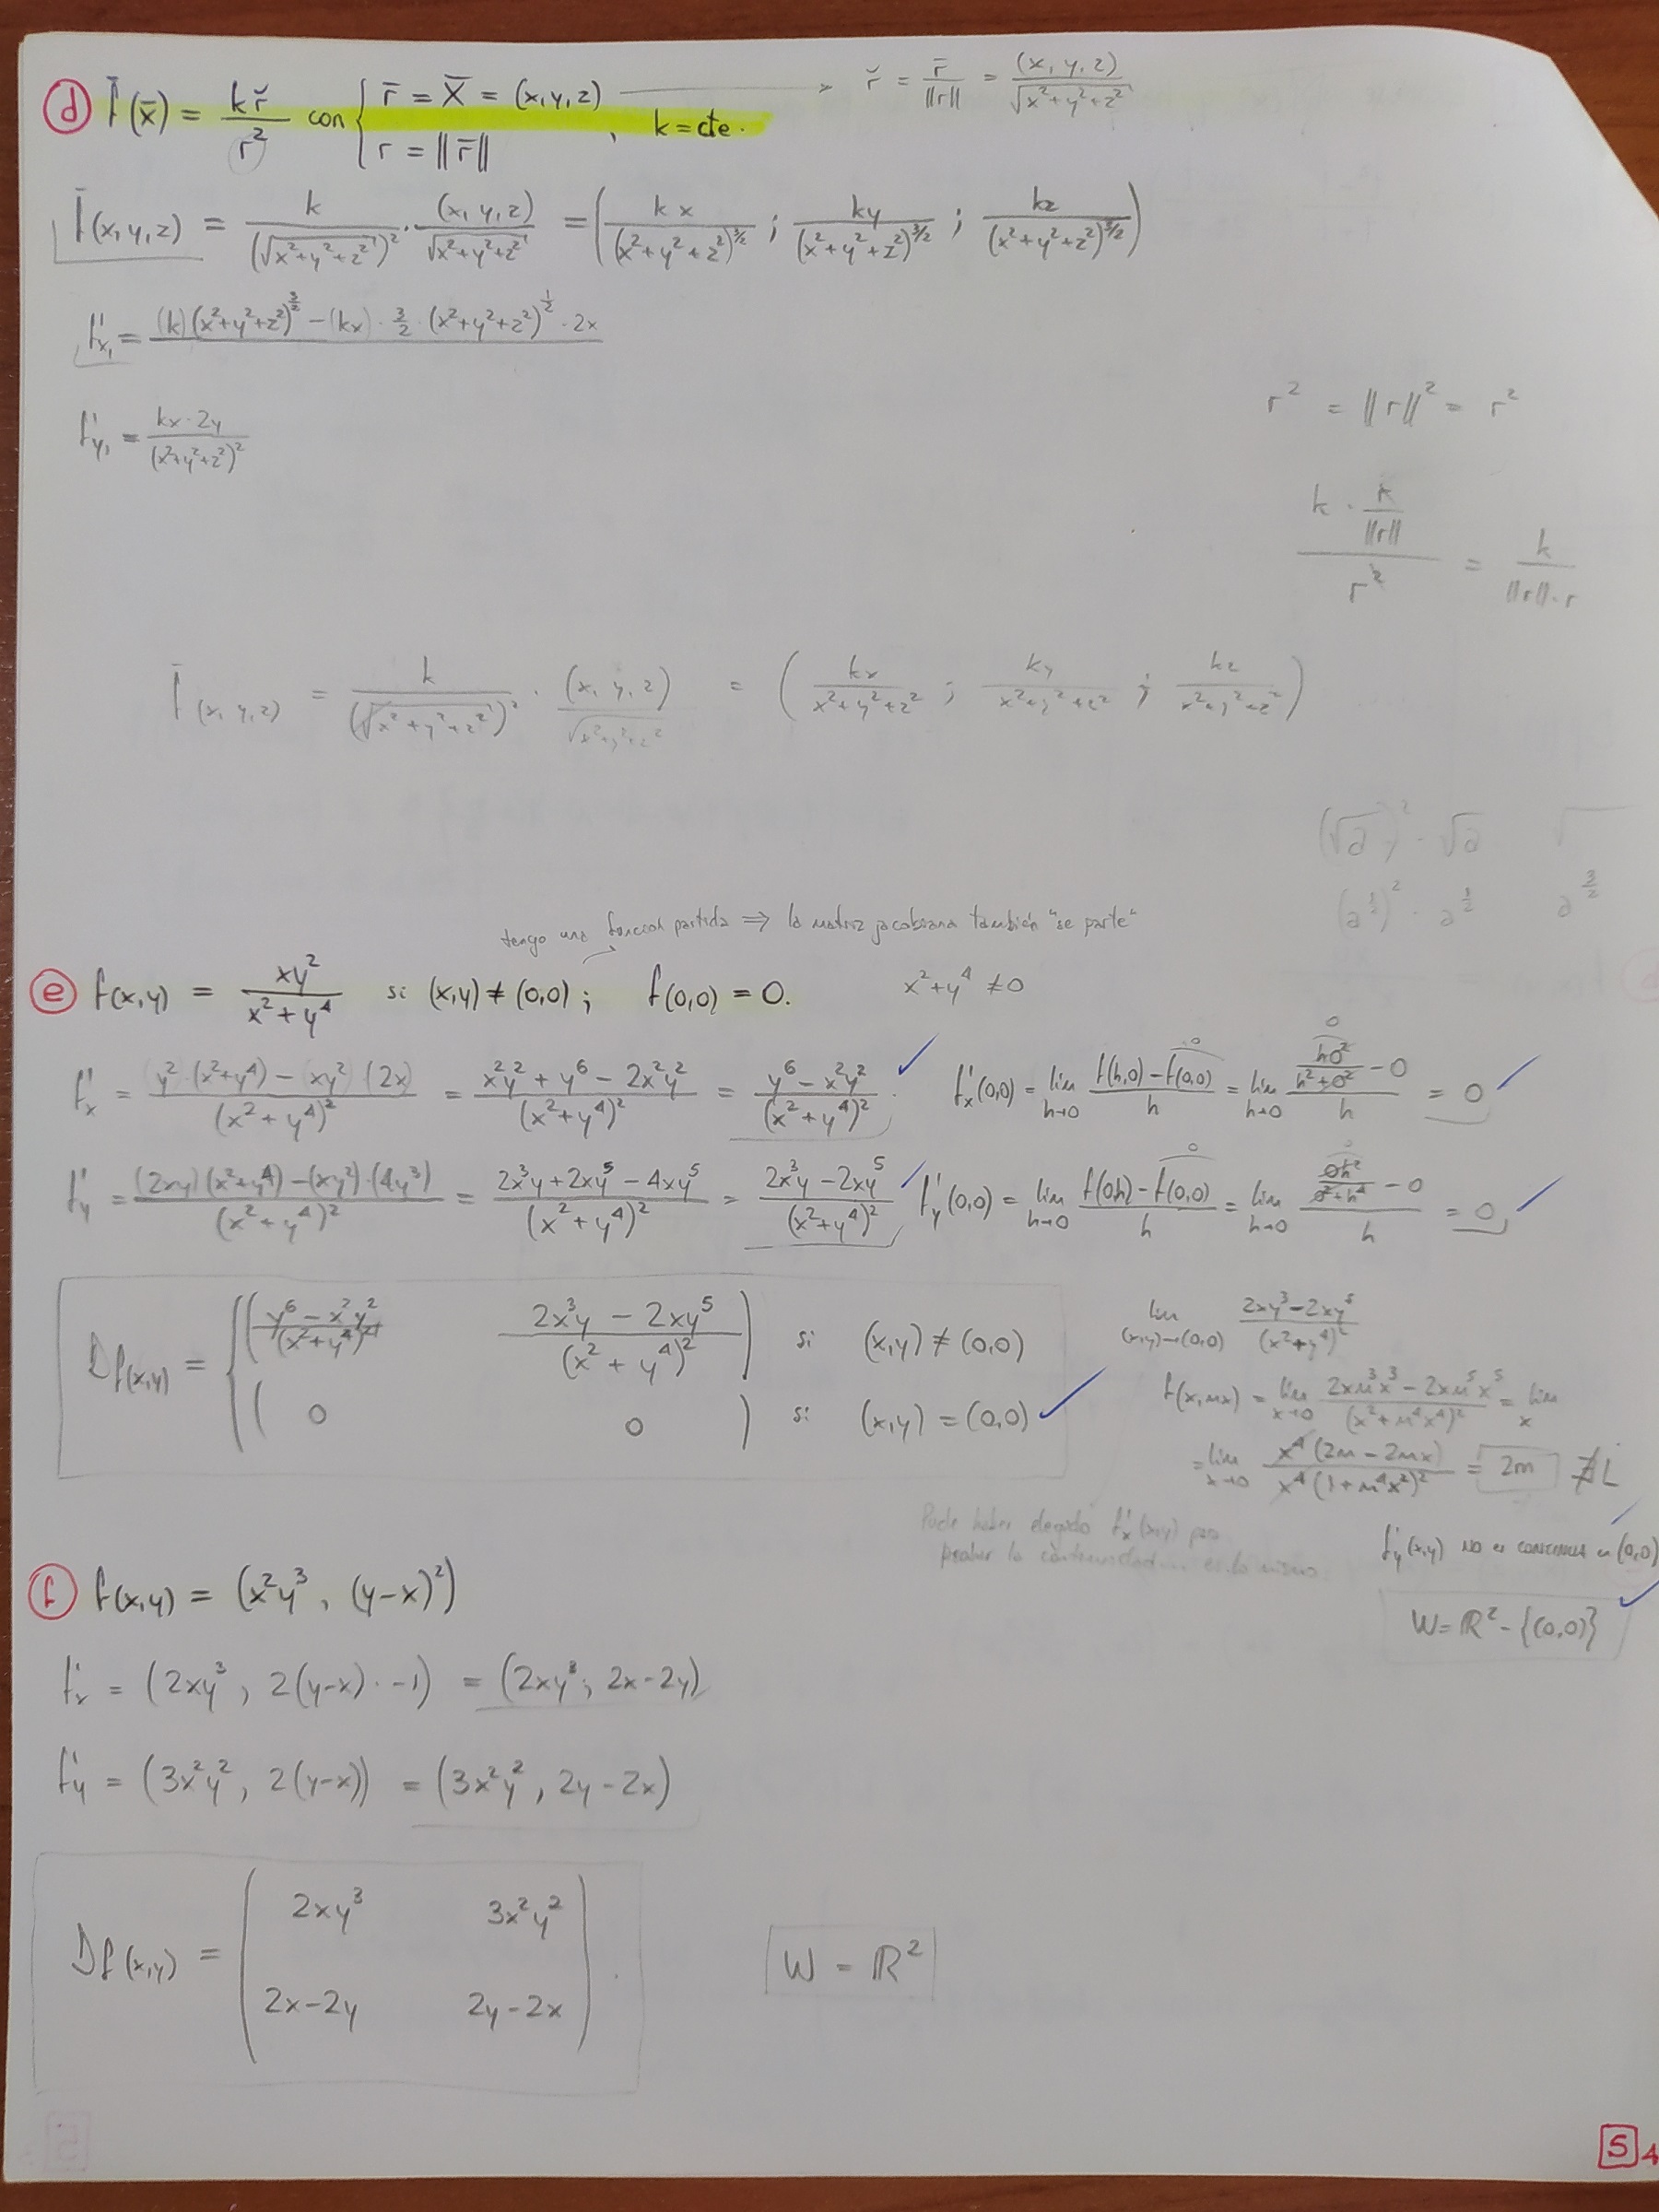 d f̄(x̄) = k ř / r² con { r̄ = X̄ = (x, y, z) , r = ||r̄|| , k = cte. → ř = r̄ / ||r|| = (x, y, z) / √(x²+y²+z²)
f̄(x, y, z) = k / (√(x²+y²+z²))² · (x, y, z) / √(x²+y²+z²) = ( kx / (x²+y²+z²)^3/2 ; ky / (x²+y²+z²)^3/2 ; kz / (x²+y²+z²)^3/2 )
f'x₁ = (k)(x²+y²+z²)^3/2 − (kx) · 3/2 · (x²+y²+z²)^1/2 · 2x
r² = ||r||² = r²
f'y₁ = kx · 2y / (x²+y²+z²)²
k · r / ||r|| / r² = k / ||r|| · r
f̄(x, y, z) = k / (√(x²+y²+z²))² · (x, y, z) / √(x²+y²+z²) = ( kx / x²+y²+z² ; ky / x²+y²+z² ; kz / x²+y²+z² )
(√a)² · √a √
(a^1/2)² · a^1/2 a^3/2
tengo una funcion partida ⇒ la matriz jacobiana también "se parte"
e f(x,y) = xy² / x² + y⁴ si (x,y) ≠ (0,0) ; f(0,0) = 0. x² + y⁴ ≠ 0
f'x = y² · (x²+y⁴) − xy² (2x) / (x² + y⁴)² = x²y² + y⁶ − 2x²y² / (x² + y⁴)² = y⁶ − x²y² / (x² + y⁴)² ✓ f'x(0,0) = lim h→0 f(h,0) − f(0,0) / h = lim h→0 h0² / h²+0² − 0 / h = 0 ✓
f'y = (2xy)(x²+y⁴) − (xy²) · (4y³) / (x² + y⁴)² = 2x³y + 2xy⁵ − 4xy⁵ / (x² + y⁴)² = 2x³y − 2xy⁵ / (x² + y⁴)² ✓ f'y(0,0) = lim h→0 f(0,h) − f(0,0) / h = lim h→0 0h² / 0²+h⁴ − 0 / h = 0 ✓
Df(x,y) = { ( y⁶ − x²y² / (x² + y⁴)² 2x³y − 2xy⁵ / (x² + y⁴)² ) si (x,y) ≠ (0,0)
( 0 0 ) si (x,y) = (0,0) ✓
lim (x,y)→(0,0) 2xy³ − 2xy⁵ / (x²+y⁴)²
f(x, mx) = lim x→0 2xm³x³ − 2xm⁵x⁵ / (x² + m⁴x⁴)² = lim x
= lim x→0 x⁴ (2m − 2mx) / x⁴ (1 + m⁴x²)² = 2m ∄ L
Pude haber elegido f'x (x,y) para
probar la continuidad... es lo mismo
f'y (x,y) no es continua en (0,0) ✓
W = ℝ² − {(0,0)} ✓
f f(x,y) = (x²y³ , (y−x)²)
f'x = (2xy³ , 2(y−x) · −1) = (2xy³ ; 2x − 2y)
f'y = (3x²y² , 2(y−x)) = (3x²y² , 2y − 2x)
Df(x,y) = ( 2xy³ 3x²y²
2x − 2y 2y − 2x ) .
W = ℝ²
5 4